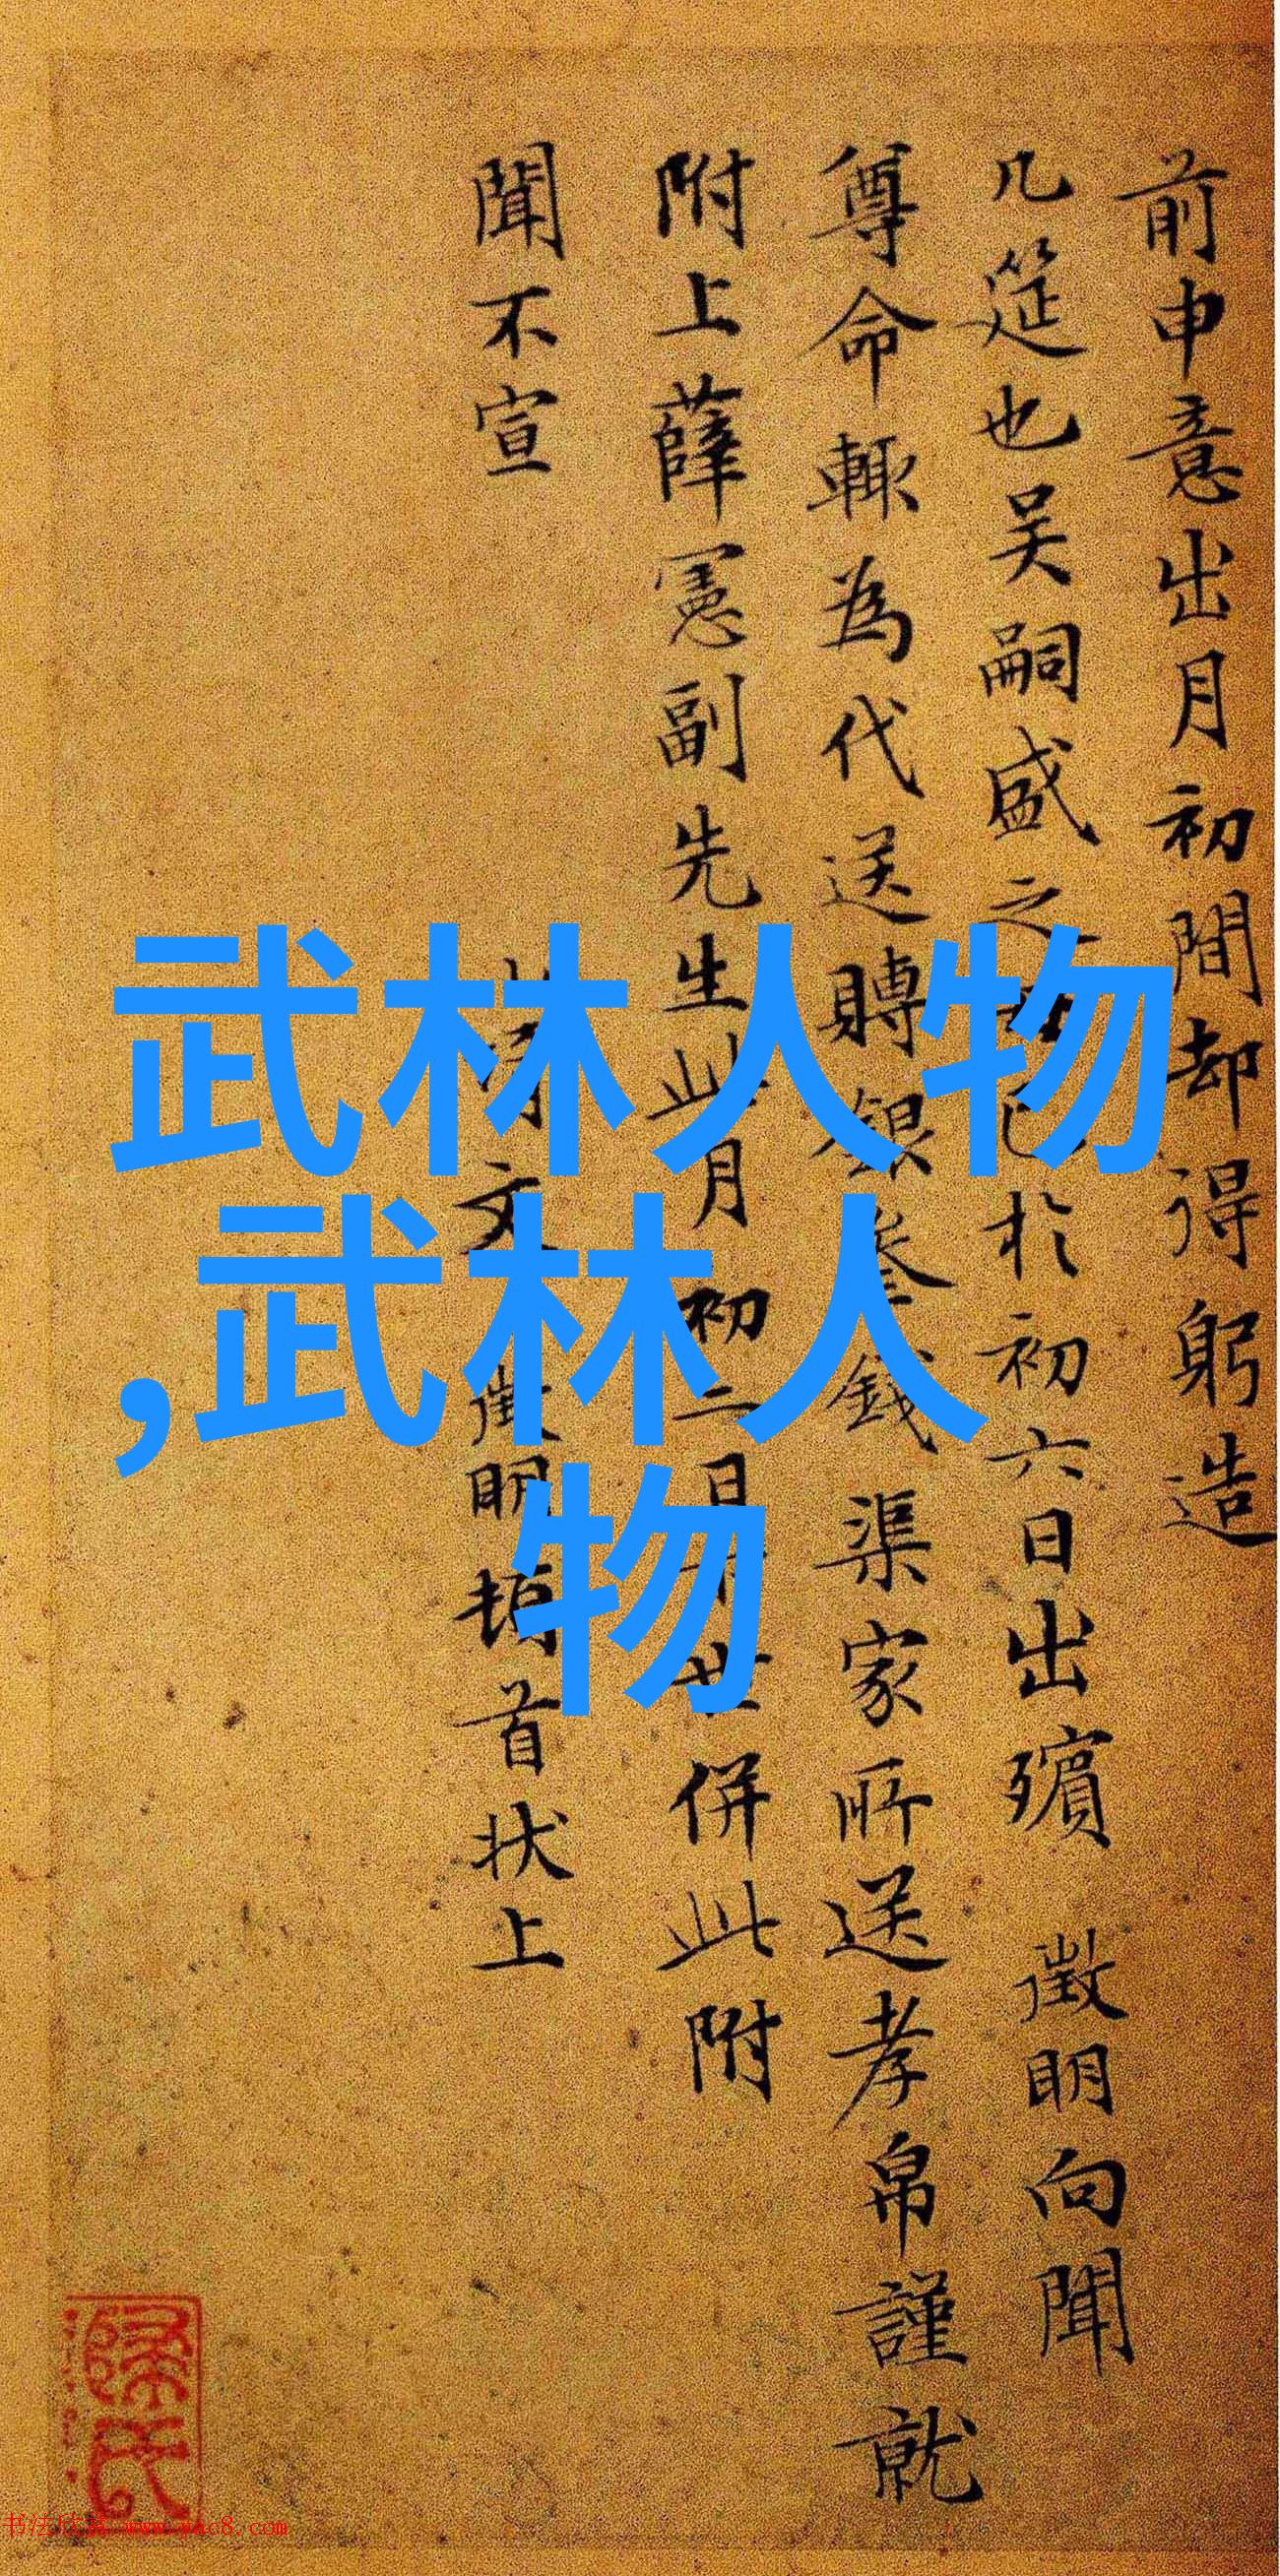 前申意出月初間却得躬造
几筵也吴嗣盛之於初六日出殯 徵明向聞
尊命輒為代送賻銀叁錢渠家所送孝帛謹就
附上薛憲副先生此月初二日世併此附
聞不宣
侍文徵明頓首狀上
武林人物
,武林人
物
書法欣賞 www.yac8.com